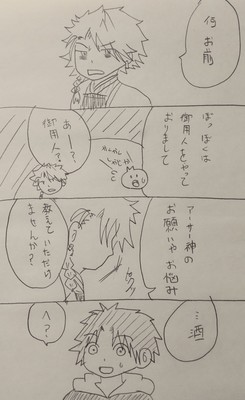 何 お前
ぼっぼくは
御用人をやって
おりまして
あー?
御用人?
アーサー神の
お願いや お悩み
教えていただけ
ませんか?
…酒
へ?